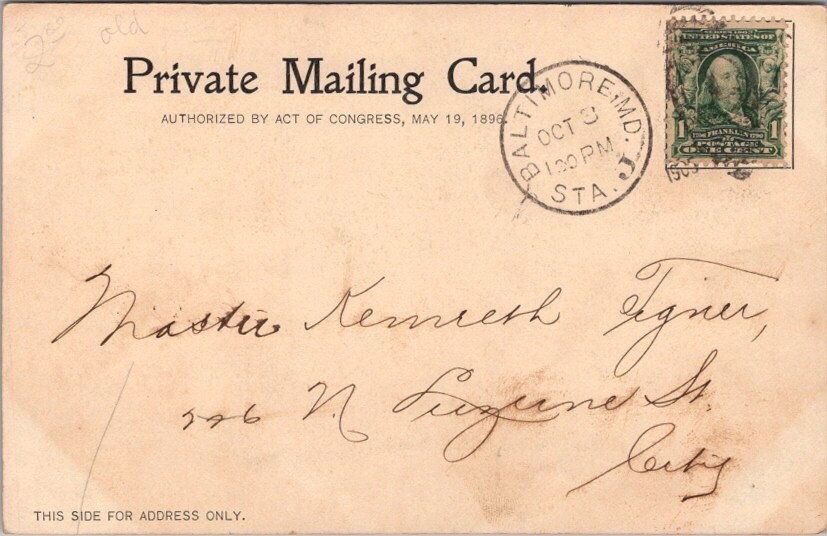 2.80
old
Private Mailing Card.
AUTHORIZED BY ACT OF CONGRESS, MAY 19, 1898.
BALTIMORE, MD.
OCT 3
1 30 PM
STA. J
1905
UNITED STATES OF
AMERICA
1 FRANKLIN 1
POSTAGE
ONE CENT
Master Kenneth Tigner,
526 N Luzerne St.
City
THIS SIDE FOR ADDRESS ONLY.